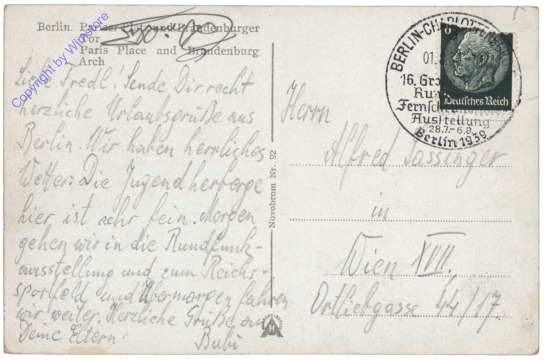 Berlin. Pariser Platz und Brandenburger
Tor
Paris Place and Brandenburg
Arch
Copyright by Winstore
Lieber Fredl! Sende Dir recht
herzliche Urlaubsgrüße aus
Berlin. Wir haben herrliches
Wetter. Die Jugendherberge
hier ist sehr fein. Morgen
gehen wir in die Rundfunk-
ausstellung und zum Reichs-
sportfeld und Übermorgen fahren
wir weiter. Herzliche Grüße an
Deine Eltern!
Bubi
Novobrom Nr. 92
BERLIN-CHARLOTTENBURG
01.
16. Gr
Run
Fernseh
Ausstellung
28.7.-6.8.
Berlin 1939
6
Deutsches Reich
Herrn
Alfred Sassinger
in
Wien XVII.
Ortliebgasse 44/17.